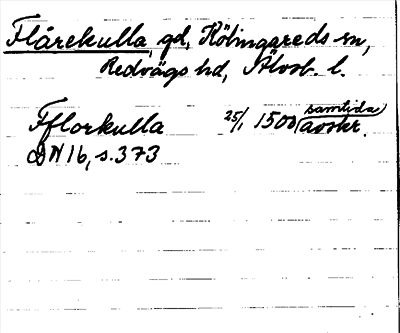 Flårekulla, gd, Kölingareds sn,
Redvägs hd, Älvsb. l.
Fflorkulla 25/1 1500 (samtida avskr.
DN 16, s. 373